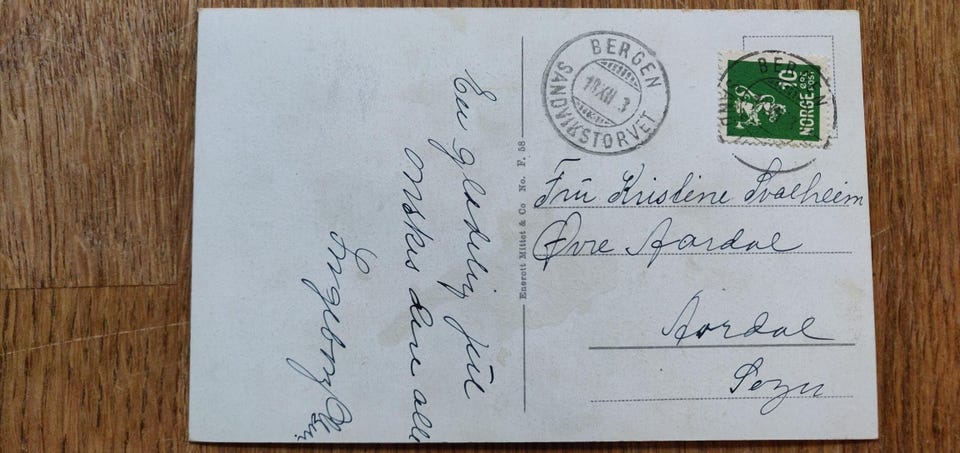 En gledelig jul
onskes dere alle
Ingeborg
Enerett Mittet & Co No. F. 58
BERGEN
18 XII 3
SANDVIKSTORVET
BERGEN
NORGE
POST
ØRE
Fru Kristine Svalheim
Øvre Aardal
Aardal
Sogn